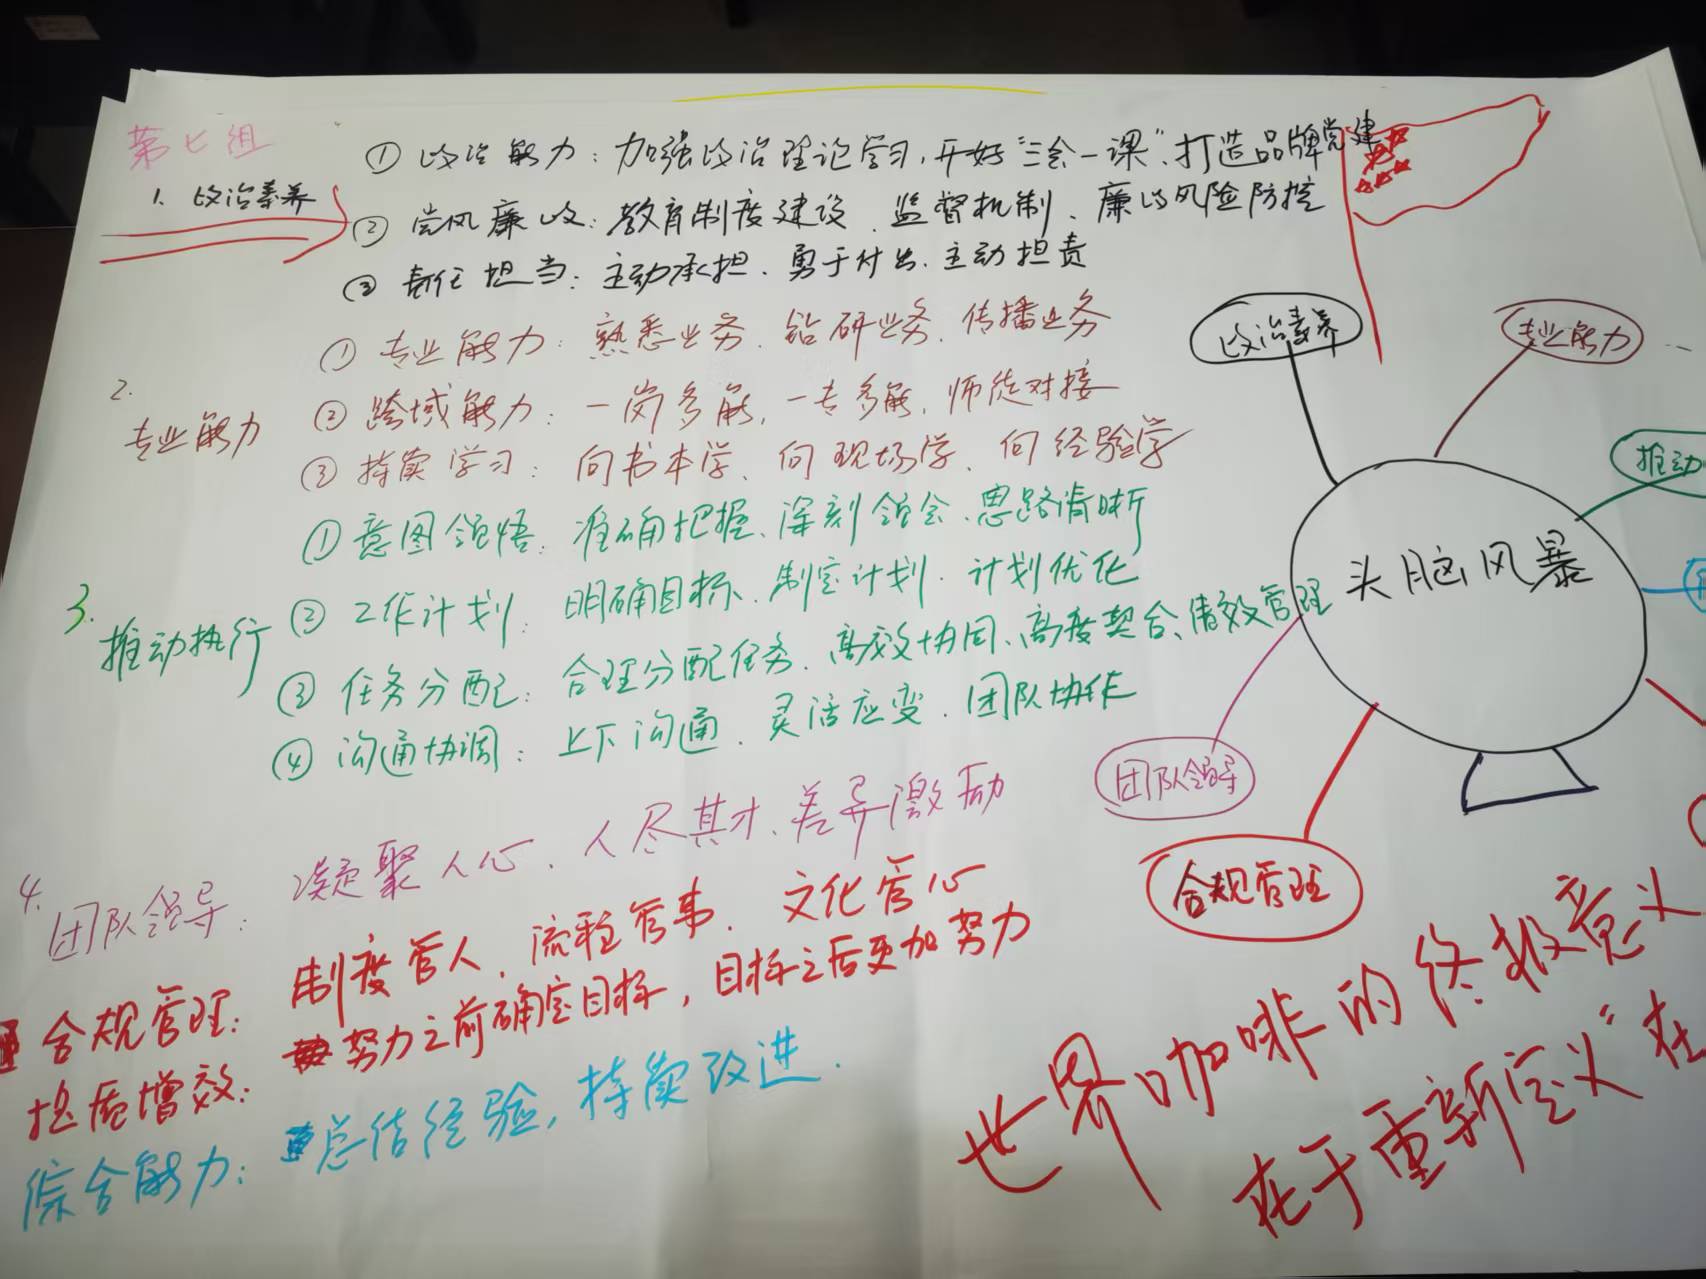 第七组
1. 政治素养
① 政治能力：加强政治理论学习，开好"三会一课"、打造品牌党建
② 党风廉政：教育制度建设、监督机制、廉政风险防控
③ 责任担当：主动承担、勇于付出、主动担责
2.
专业能力
① 专业能力：熟悉业务、钻研业务、传播业务
② 跨域能力：一岗多能，一专多能，师徒对接
③ 持续学习：向书本学、向现场学、向经验学
3.
推动执行
① 意图领悟：准确把握、深刻领会、思路清晰
② 工作计划：明确目标、制定计划、计划优化
③ 任务分配：合理分配任务、高效协同、高度契合、绩效管理
④ 沟通协调：上下沟通、灵活应变、团队协作
4.
团队领导：凝聚人心、人尽其才、差异激励
合规管理：制度管人、流程管事、文化管心
提质增效：努力之前确定目标，目标之后更加努力
综合能力：总结经验，持续改进.
政治素养
专业能力
推动
头脑风暴
团队领导
合规管理
世界咖啡的终极意义
在于重新定义"在